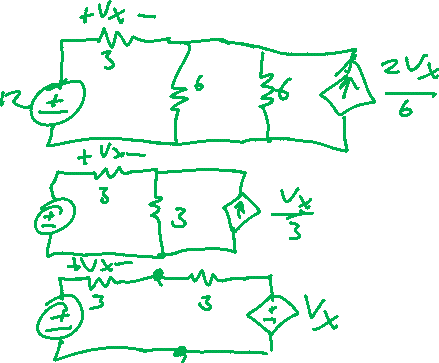 + Vx -
3
12
+
-
6
6
2Vx
6
+ Vx -
3
+
-
3
Vx
3
+ Vx -
3
3
+
-
+
-
Vx